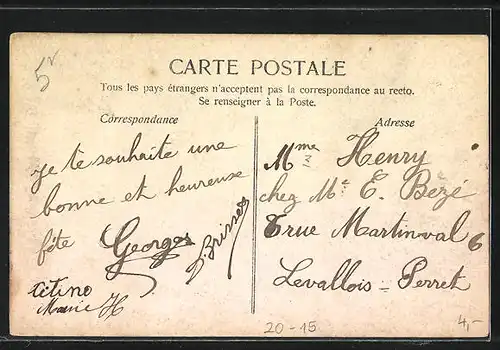 5r
CARTE POSTALE
Tous les pays étrangers n'acceptent pas la correspondance au recto.
Se renseigner à la Poste.
Correspondance
Je te souhaite une
bonne et heureuse
fête Georges
P. Brisses
titine
Marie H
Adresse
Mme Henry
chez Mr E. Bézé
6 rue Martinval 6
Levallois = Perret
20-15
4,-